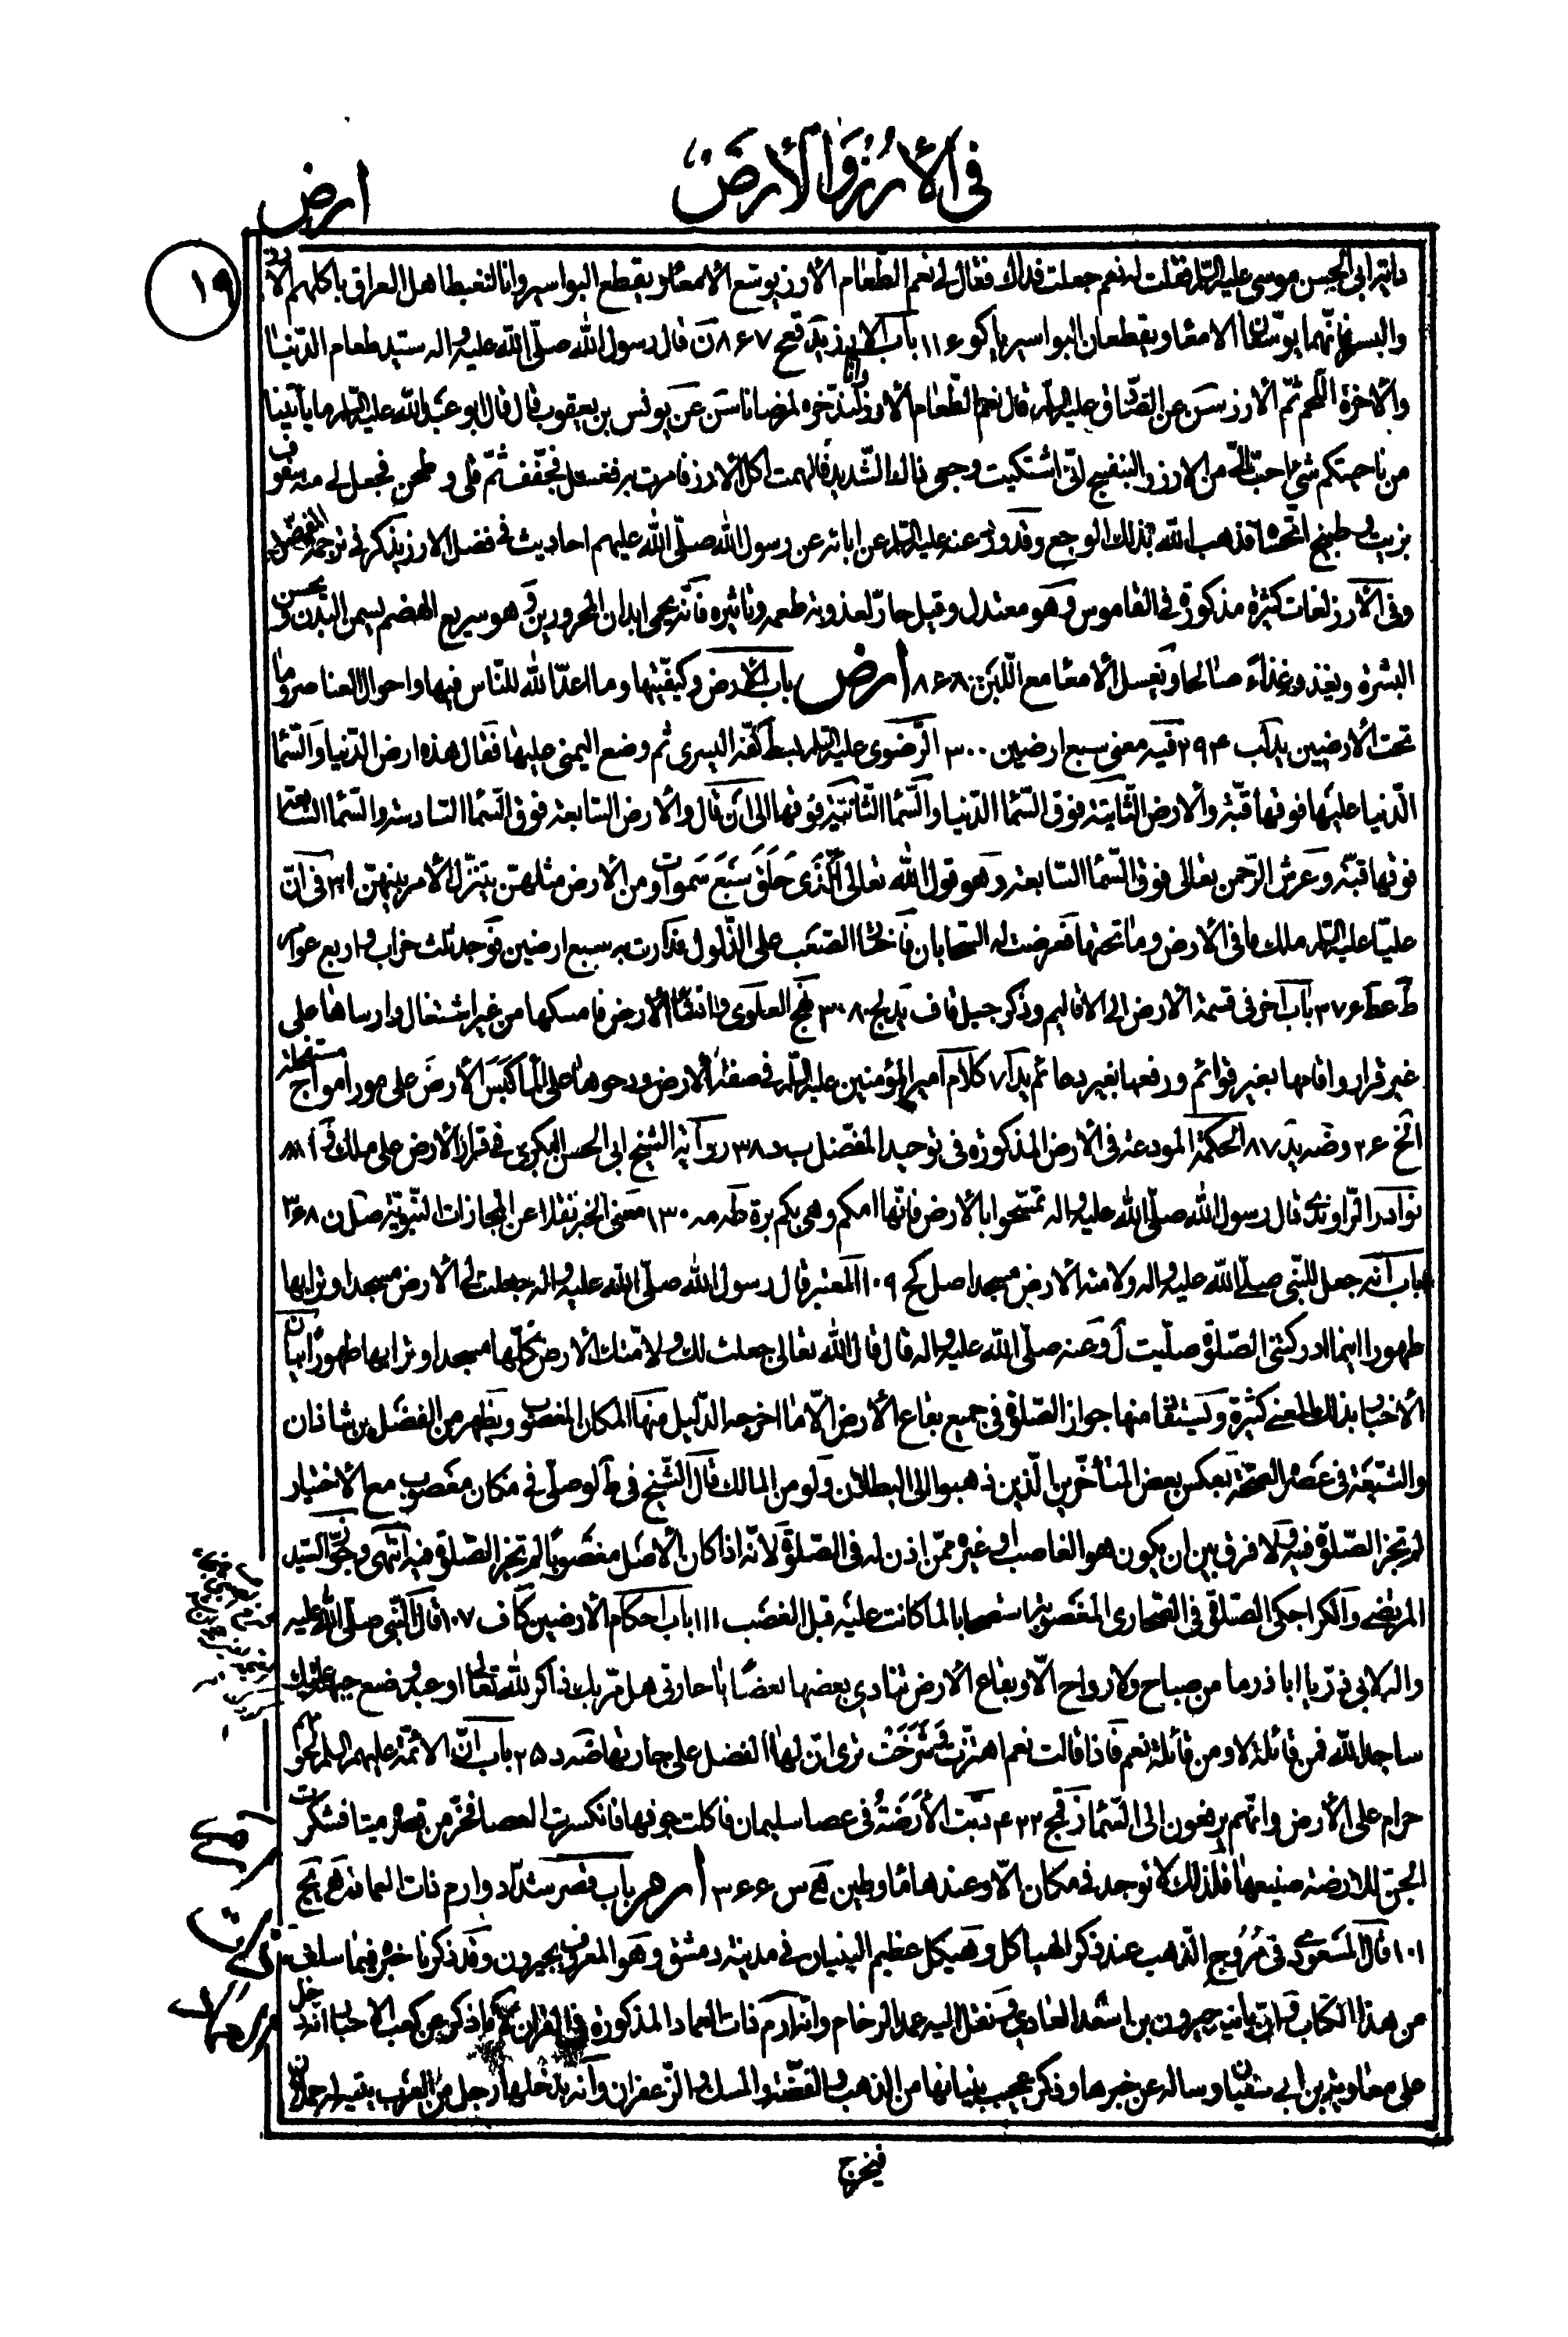 في الأرز والأرض
ارض
١٩
دابة ابي الحسن موسى عليه السلام فقلت له نعم جعلت فداك فقال لي نعم الطعام الأرز يوسع الأمعاء ويقطع البواسير وانا لنغبط اهل العراق باكلهم الأرز
والبسر فانهما يوسعان الامعاء ويقطعان البواسير ١١۶ باب الارز يد قفح ٨۶٧ ن قال رسول الله صلى الله عليه واله سيد طعام الدنيا
والآخرة اللحم ثم الأرز سن عن الصادق عليه السلام قال نعم الطعام الأرز وانا لندخره لمرضانا سن عن يونس بن يعقوب قال قال ابو عبد الله عليه السلام ما يأتينا
من ناحيتكم شيء احب الي من الارز والبنفسج اني اشتكيت وجعي ذالك الشديد فالهمت اكل الأرز فامرت به فغسل فجفف ثم قلي وطحن فجعل لي منه سفوف
بزيت وطبيخ اتحساه فذهب الله بذلك الوجع وقد ورد عنه عليه السلام عن ابائه عن رسول الله صلى الله عليهم احاديث في فضل الارز يذكر في ترجمة المفضل
وفي الأرز لغات كثيرة مذكورة في القاموس وهو معتدل وقيل حار لعذوبة طعمه وتاثيره فانه يحمي ابدان المحرورين وهو سريع الهضم يسمن البدن ويحسن
البشرة ويغذو غذاء صالحا ويغسل الأمعاء مع اللبن ٨۶٨ ارض باب الأرض وكيفيتها وما اعد الله للناس فيها واحوال العناصر وما
تحت الأرضين يد لب ٢٩۴ فيه معنى سبع ارضين ٣٠٠ الرضوي عليه السلام بسط كفه اليسرى ثم وضع اليمنى عليها فقال هذه ارض الدنيا والسماء
الدنيا عليها فوقها قبة والأرض الثانية فوق السماء الدنيا والسماء الثانية فوقها الى ان قال والأرض السابعة فوق السماء السادسة والسماء السابعة
فوقها قبة وعرش الرحمن تعالى فوق السماء السابعة وهو قول الله تعالى الذي خلق سبع سموات ومن الأرض مثلهن يتنزل الأمر بينهن في ان
عليا عليه السلام ملك ما في الأرض وما تحتها فعرضت له السحابان فاختار الصعب على الذلول فدارت به سبع ارضين فوجد ثلث خراب واربع عوامر
ط عط ٣٧۶ باب اخر في قسمة الأرض الى الاقاليم وذكر جبل قاف يد لج ٣٠٨ نهج العلوي وانشأ الأرض فامسكها من غير اشتغال وارساها على
غير قرار واقامها بغير قوائم ورفعها بغير دعائم يد كلام امير المؤمنين عليه السلام في صفة الأرض ودحوها على الماء كبس الأرض على مور امواج مستفحلة
الخ ٢۶ وضه يد ٨٧ الحكمة المودعة في الأرض المذكورة في توحيد المفضل ب د ٣٨ رواية الشيخ ابي الحسن البكري في قرار الأرض على ملك
نوادر الراوندي قال رسول الله صلى الله عليه واله تمسحوا بالأرض فانها امكم وهي بكم برة طه مه ١٣٠ معنى الخبر نقلا عن المجازات النبوية صل ن ٣۶٨
باب انه جعل للنبي صلى الله عليه واله ولامته الأرض مسجدا صل كح ١٠٩ المعتبر قال رسول الله صلى الله عليه واله جعلت لي الأرض مسجدا وترابها
طهورا اينما ادركتني الصلوة صليت ل وعنه صلى الله عليه واله قال قال الله تعالى جعلت لك ولامتك الأرض كلها مسجدا وترابها طهورا بيان
الأخبار بذلك المعنى كثيرة ويستفاد منها جواز الصلوة في جميع بقاع الأرض الا ما اخرجه الدليل منها المكان المغصوب ويظهر من الفضل بن شاذان
والشيعة في عصره الصحة بعكس بعض المتأخرين الذين ذهبوا الى البطلان ولو من المالك قال الشيخ في ط لو صلى في مكان مغصوب مع الاختيار
لم تجز الصلوة فيه ولا فرق بين ان يكون هو الغاصب او غيره ممن اذن له في الصلوة لانه اذا كان الأصل مغصوبا لم تجز الصلوة فيه انتهى وجوز السيد
المرتضى والكراجكي الصلوة في الصحارى المغصوبة استصحابا لما كانت عليه قبل الغصب ١١١ باب احكام الأرضين كا ف ١٠٧ قال النبي صلى الله عليه
واله لابي ذر يا اباذر ما من صباح ولا رواح الا وبقاع الأرض تنادي بعضها بعضا يا جارتي هل مر بك ذاكر لله تعالى او عبد وضع جبهته عليك
ساجدا لله فمن قائلة لا ومن قائلة نعم فاذا قالت نعم اهتزت وشرخت ترى ان لها الفضل على جارتها ضه د ٢۵ باب ان الائمة عليهم السلام لحومهم
حرام على الأرض وانهم يرفعون الى السماء ز فج ۴٢٢ دبت الأرضة في عصا سليمان فاكلت جوفها فانكسرت العصا فخر من قصره ميتا فشكرت
الجن للارضة صنيعها فلذلك لا توجد في مكان الا وعندها ماء وطين هج س ٣۶۶ ارم باب قصر شداد وارم ذات العماد هج
١٠١ قال المسعودي في مروج الذهب عند ذكر الهياكل وهيكل عظيم البنيان في مدينة دمشق وهو المعروف بجيرون وقد ذكرنا خبره فيما سلف
من هذا الكتاب وان بانيه جيرون بن سعد العادي ونقل اليه عمد الرخام وانه ارم ذات العماد المذكورة في القران الا ما ذكر عن كعب الاحبار انه دخل
على معاوية بن ابي سفيان وساله عن خبرها وذكر عجيب بنيانها من الذهب والفضة والمسك والزعفران وانه يدخلها رجل من العرب يتيه له جملان
فيخرج